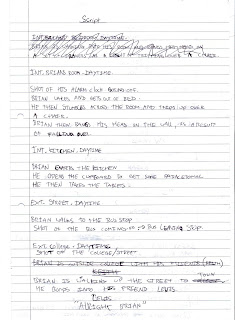 Script
INT. BRIANS BEDROOM - DAYTIME
INT. BRIANS ROOM - DAYTIME.
SHOT OF HIS ALARM CLOCK GOING OFF.
BRIAN WAKES AND GETS OUT OF BED.
HE THEN STUMBLES ACROSS THE ROOM AND TRIPS UP OVER
A CHAIR.
BRIAN THEN BANGS HIS HEAD ON THE WALL, AS A RESULT
OF FALLING OVER
INT. KITCHEN. DAYTIME
BRIAN ENTERS THE KITCHEN
HE OPENS THE CUPBOARD TO GET SOME PARACETAMOL
HE THEN TAKES THE TABLETS.
EXT. STREET. DAYTIME
BRIAN WALKS TO THE BUS STOP
SHOT OF THE BUS COMING LEAVING STOP
EXT. COLLEGE - DAYTIME
SHOT OF THE COLLEGE/STREET
BRIAN IS OUTSIDE COLLEGE WITH HIS FRIENDS
TOWN
BRIAN IS WALKING UP THE STREET TO
HE BUMPS INTO HIS FRIEND LEWIS
LEWIS
"ALRIGHT BRIAN"